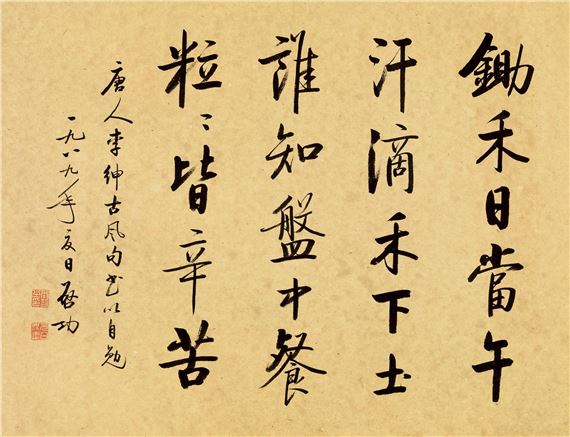 鋤禾日當午
汗滴禾下土
誰知盤中餐
粒〻皆辛苦
唐人李紳古風句書以自勉
一九八九年夏日啟功